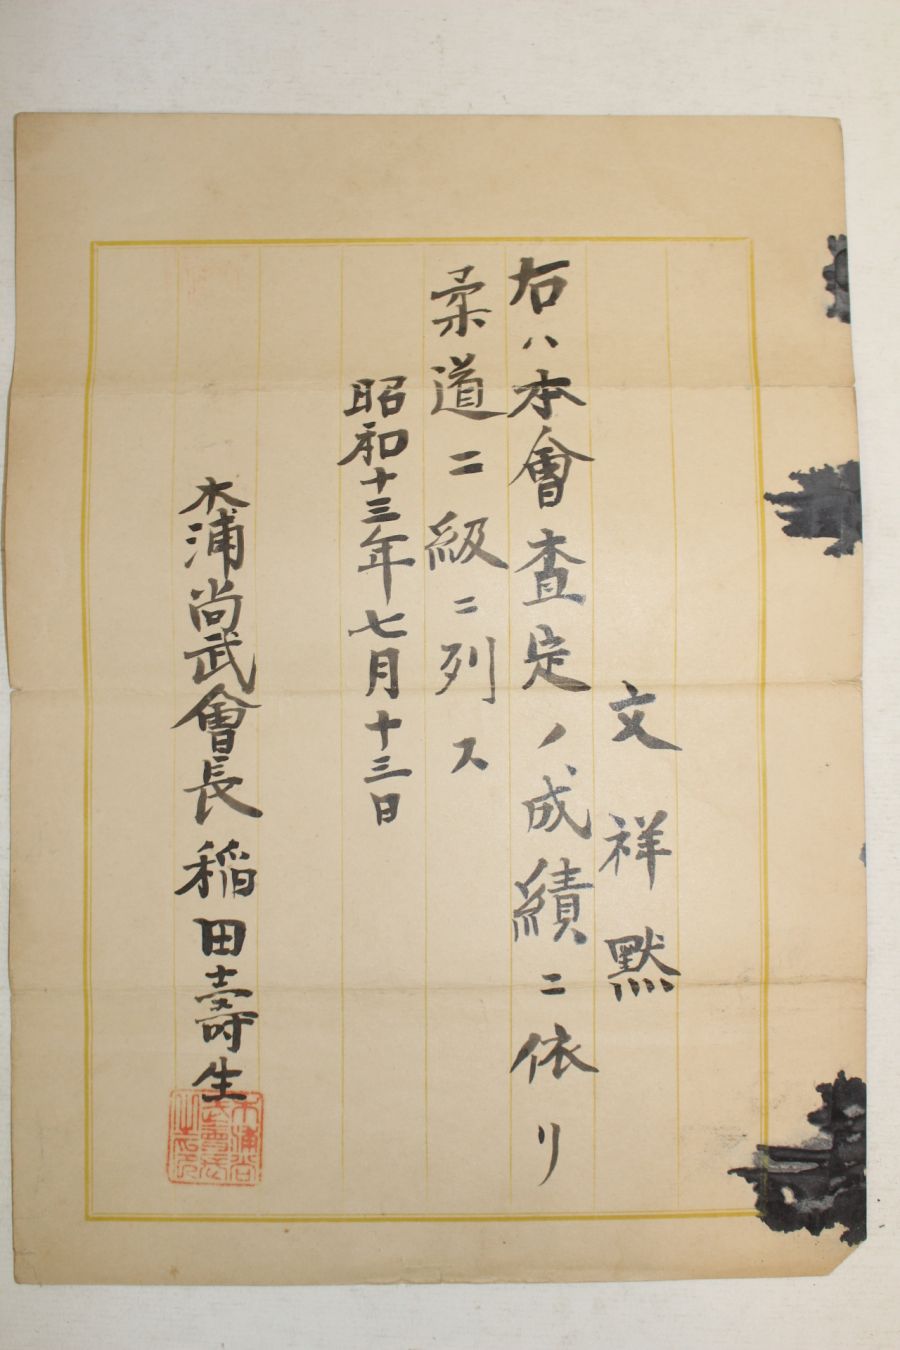 文祥黙
右ハ本會査定ノ成績ニ依リ
柔道二級ニ列ス
昭和十三年七月十三日
木浦尚武會長稲田壽生
木浦尚
武會長
之印